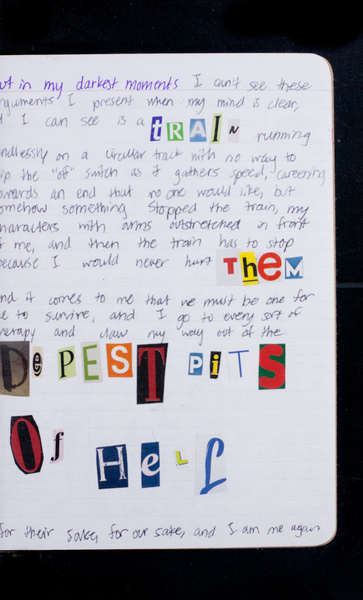 ut in my darkest moments I can't see these
rguments I present when my mind is clear,
I can see is a TRAIN running
ndlessly on a circular track with no way to
ip the "off" switch as it gathers speed, careening
owards an end that no one would like, but
omehow something stopped the train, my
haracters with arms outstretched in front
f me, and then the train has to stop
because I would never hurt THEM
nd it comes to me that we must be one for
e to survive, and I go to every sort of
herapy and claw my way out of the
DePEST PiTS
Of HeLL
for their sake, for our sake, and I am me again